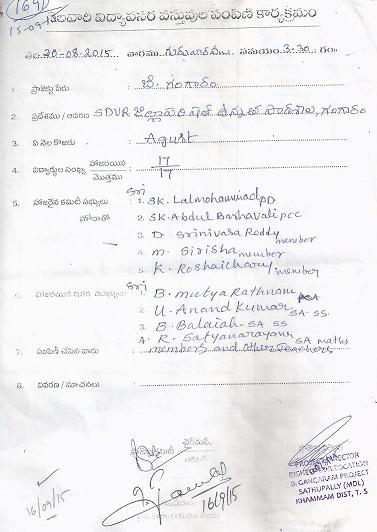 (1641)
15-09-
నెలవారి విద్యావసర వస్తువుల పంపిణి కార్యక్రమం
తేది: 20-08-2015 వారము గురువారము సమయం 3-30 గం॥
1. ప్రాజెక్టు పేరు : బి. గంగారం
2. ప్రదేశము / ఆవరణ SDVR జిల్లాపరిషత్ ఉన్నత పాఠశాల, గంగారం
3. ఏ నెల కొరకు : Agust
4. విద్యార్థుల సంఖ్య హాజరయిన / మొత్తము : 17/17
5. హాజరైన కమిటీ సభ్యులు : Sri 1. SK. Lalmohammad PD
హోదాతో 2. SK. Abdul Barhavali PCC
3. D. Srinivasa Reddy member
4. M. Sirisha member
5. K. Koshaichary member
6. హాజరయిన ఇతర ముఖ్యులు : Sri 1. B. mutya Rathnam
2. U. Anand Kumar SA-SS.
3. B. Balaiah - SA SS
4. R. Satyanarayana SA maths
7. పంపిణి చేసిన వారు : members and other Teachers
8. వివరణ / సూచనలు :
చైర్మన్,
16/09/15
16/9/15
PROJECT DIRECTOR
B. GANGARAM PROJECT
SATHUPALLY (MDL)
KHAMMAM DIST, T. S